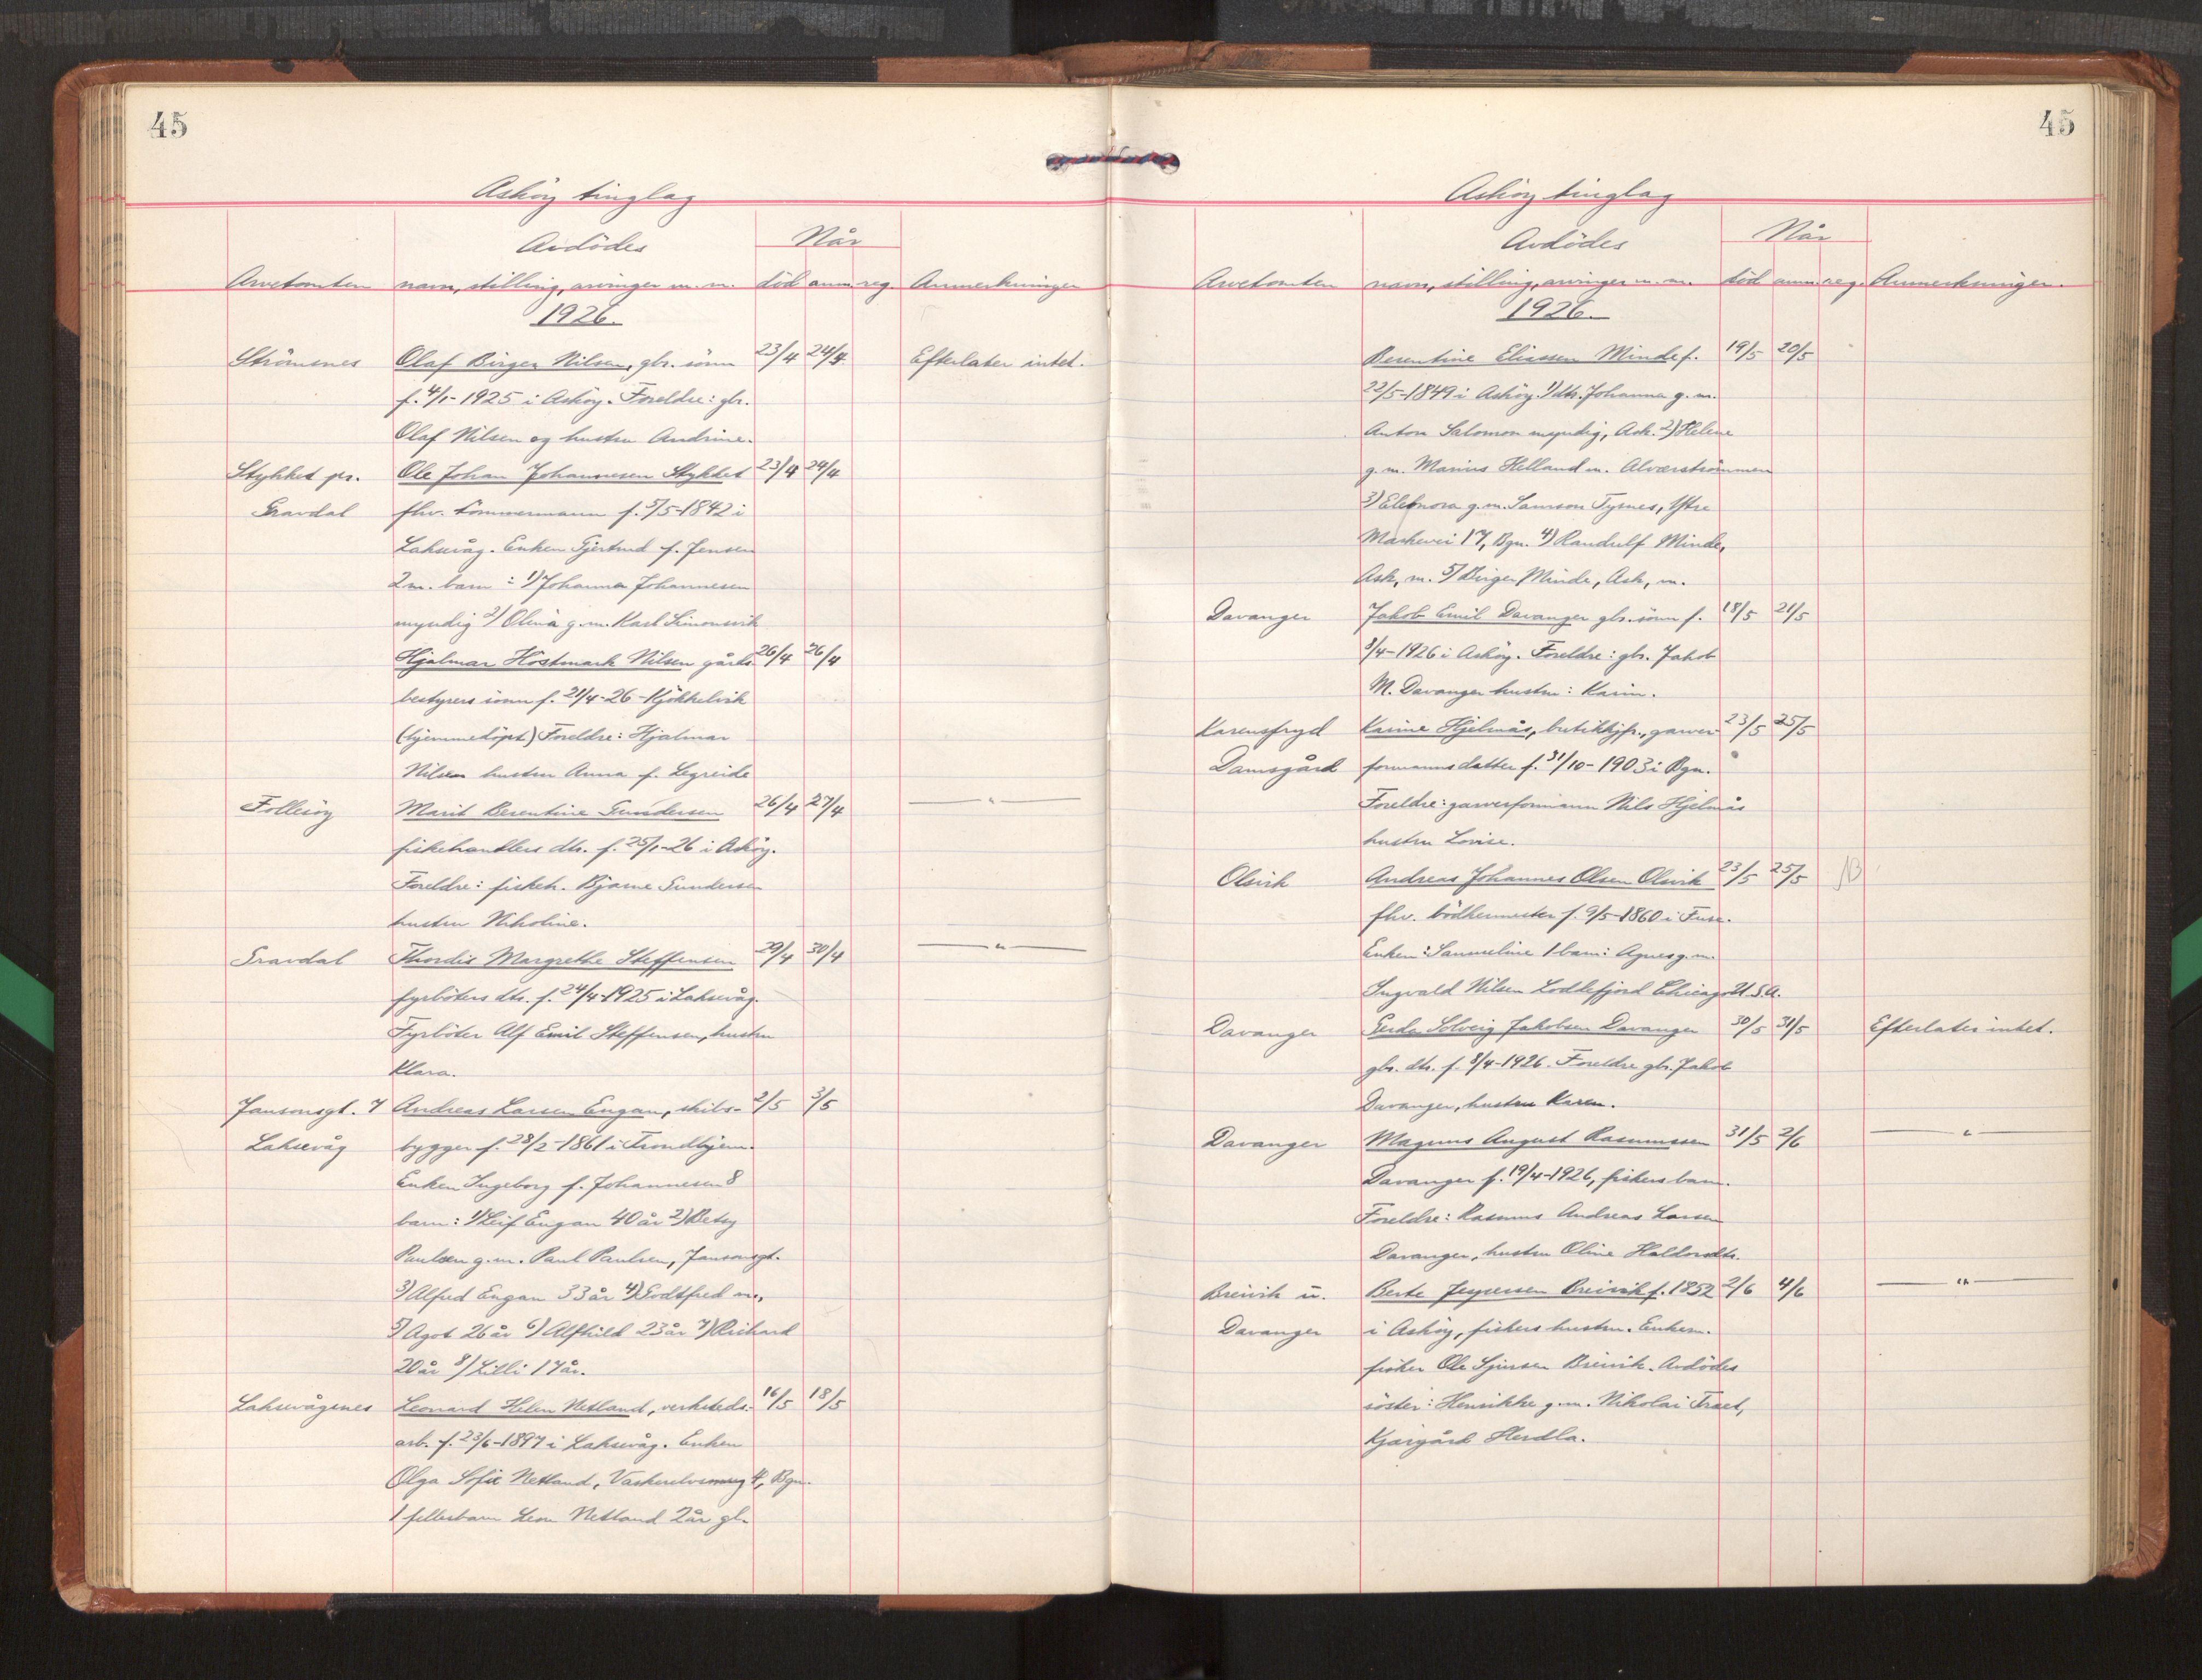 45
Askøy tinglag
Avdödes
Når
Arvetomten navn, stilling, arvinger m. m. död anm. reg. Anmerkninger
1926.
Strömsnes Olaf Birger Nilsen, gbr. sönn 23/4 24/4 Efterlater intet.
f. 4/1-1925 i Asköy. Foreldre: gbr.
Olaf Nilsen og hustru Andrine.
Stykket pr. Ole Johan Johannesen Stykket 23/4 24/4
Gravdal fhv. tömmermann f. 5/5-1842 i
Laksevåg. Enken Gjertrud f. Jensen
2 m. barn: 1) Johanna Johannesen
myndig 2) Olina g. m. Karl Simonsvik
Hjalmar Höstmark Nilsen gårds- 26/4 26/4
bestyrers sönn f. 21/4-26 - Kjökkelvik
(hjemmedöpt) Foreldre: Hjalmar
Nilsen hustru Anna f. Legreide
Follesöy Marit Berentine Gundersen 26/4 27/4 — " —
fiskehandlers dtr. f. 25/1-26 i Asköy.
Foreldre: fiskeh. Bjarne Gundersen
hustru Nikoline.
Gravdal Thordis Margrethe Steffensen 29/4 30/4 — " —
fyrböters dtr. f. 24/4-1925 i Laksevåg.
Fyrböter Alf Emil Steffensen, hustru
Klara.
Jansonsgt. 7 Andreas Larsen Engan, skibs- 2/5 3/5
Laksevåg bygger f. 28/2-1861 i Trondhjem.
Enken Ingeborg f. Johannesen 8
barn: 1) Leif Engan 40 år 2) Betsy
Paulsen g. m. Paul Paulsen, Jansonsgt.
3) Alfred Engan 33 år 4) Godtfred m.,
5) Agot 26 år 6) Alfhild 23 år 7) Richard
20 år 8) Lilli 17 år.
Laksevågsnes Leonard Helen Netland, verksteds- 16/5 18/5
arb. f. 23/6-1897 i Laksevåg. Enken
Olga Sofie Netland, Vaskerelvsmug 4, Bgn.
1 fellesbarn Leon Netland 2 år gl.
45
Askøy tinglag
Avdödes
Når
Arvetomten navn, stilling, arvinger m. m. död anm. reg. Anmerkninger.
1926.
Berentine Eliassen Minde f. 19/5 20/5
22/5-1849 i Asköy. 1) dtr. Johanna g. m.
Anton Salomon myndig, Ask. 2) Helene
g. m. Marius Helland m. Alverströmmen
3) Eleonora g. m. Samson Tysnes, Ytre
Markevei 17, Bgn. 4) Randulf Minde,
Ask, m. 5) Birger Minde, Ask, m.
Davanger Jakob Emil Davanger gbr. sönn f. 18/5 21/5
8/4-1926 i Asköy. Foreldre: gbr. Jakob
M. Davanger hustru: Karin.
Karensfryd Karine Hjelmås, butikkjfr., garver- 23/5 25/5
Damsgård formannsdatter f. 31/10-1903 i Bgn.
Foreldre: garverformann Nils Hjelmås
hustru Lovise.
Olsvik Andreas Johannes Olsen Olsvik 23/5 25/5
fhv. bödkermester f. 9/5-1860 i Fuse.
Enken: Sammeline 1 barn: Agnes g. m.
Ingvald Nilsen Loddefjord Chicago U.S.A.
Davanger Gerda Solveig Jakobsen Davanger 30/5 31/5 Efterlater intet.
gbr. dtr. f. 8/4-1926. Foreldre gbr. Jakob
Davanger, hustru Karen.
Davanger Magnus August Rasmussen 31/5 2/6 — " —
Davanger f. 19/4-1926, fiskers barn.
Foreldre: Rasmus Andreas Larsen
Davanger, hustru Oline Halvordtr.
Breivik u. Berte Jespersen Breivik f. 1852 2/6 4/6 — " —
Davanger i Asköy, fiskers hustru. Enkem.
fisker Ole Sjursen Breivik. Avdödes
söster: Henrikke g. m. Nikolai Træet,
Kjærgård Herdla.